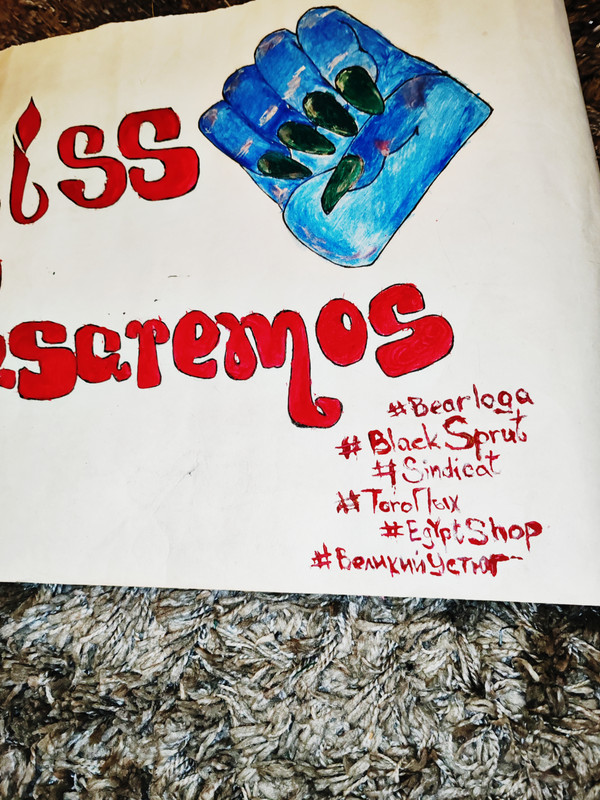 iss
asaremos
#Bearloga
#BlackSprut
#Sindicat
#ToroПых
#EgyptShop
#ВеликийУстюг